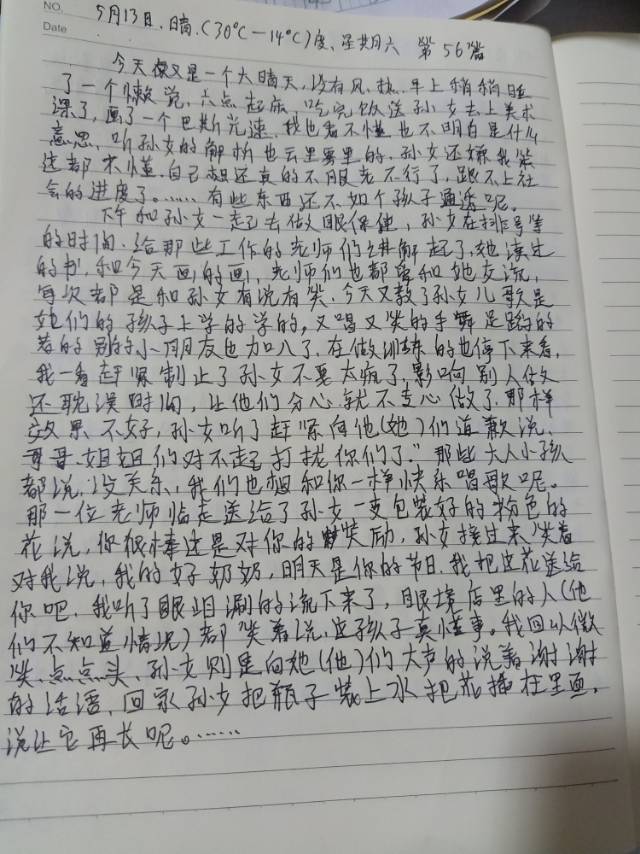 NO.
Date
5月13日.晴.(30℃—14℃)度、星期六 第56篇
今天又是一个大晴天,没有风,热.早上稍稍睡
了一个懒觉,六点起床,吃完饭送孙女去上美术
课了,画了一个巴斯光速,我也看不懂也不明白是什么
意思,听孙女的解析也云里雾里的.孙女还嫌我笨
这都不懂.自己想还真的不服老不行了,跟不上社
会的进度了。……有些东西还不如个孩子通透呢。
下午和孙女一起去做眼保健,孙女在排号等
的时间.给那些工作的老师们讲解起了,她读过
的书,和今天画的画,老师们也都爱和她交流,
每次都是和孙女有说有笑.今天又教了孙女儿歌是
她们的孩子上学的学的,又唱又笑的手舞足蹈的
着的别的小朋友也加入了.在做训练的也停下来看,
我一看赶紧制止了孙女不要太疯了,影响别人做
还耽误时间,让他们分心就不专心做了.那样
效果不好,孙女听了赶紧向他(她)们道歉说,
哥哥.姐姐们对不起打扰你们了."那些大人小孩
都说.没关系,我们也想和你一样快乐唱歌呢。
那一位老师临走送给了孙女一支包装好的粉色的
花说,你很棒这是对你的奖励,孙女接过来笑着
对我说,我的好奶奶,明天是你的节日.我把这花送给
你吧.我听了眼泪涮的流下来了,眼境店里的人(他
们不知道情况)都笑着说,这孩子真懂事。我回以微
笑、点点头、孙女则是向她(他)们大声的说着谢谢谢
的话语,回家孙女把瓶子装上水把花插在里面,
说让它再长呢。……